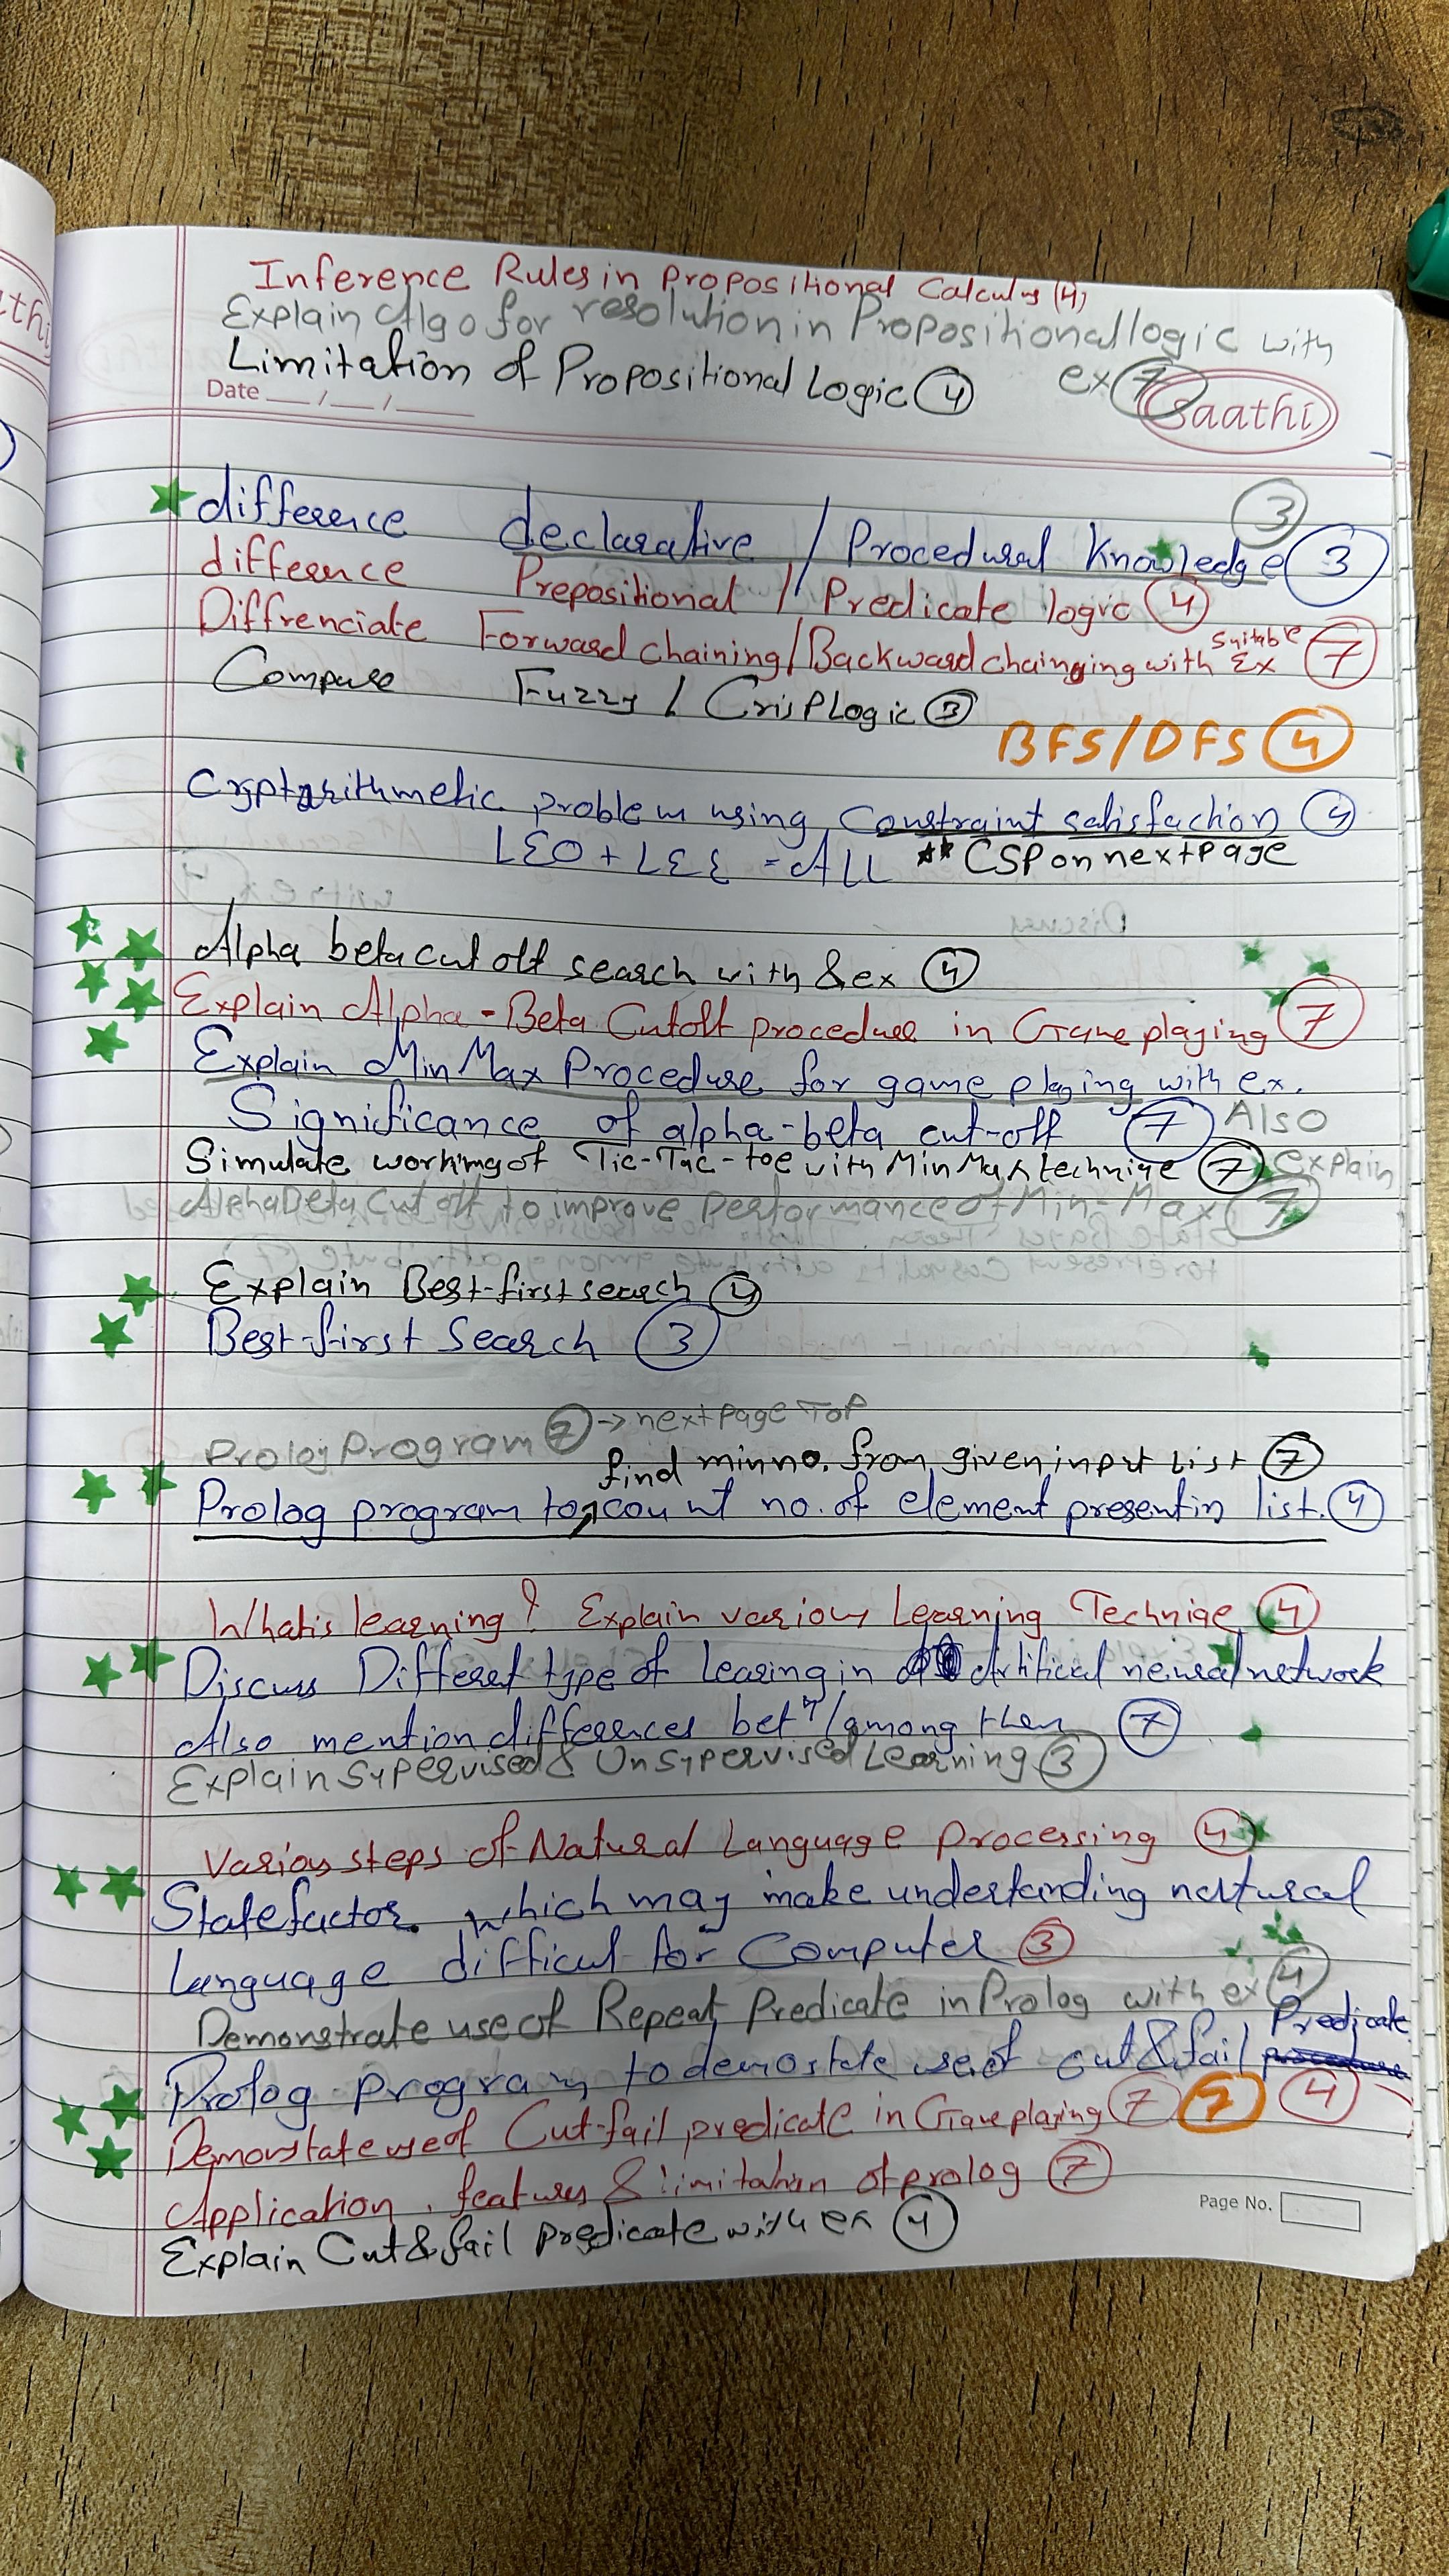 Inference Rules in Propositional Calculus (4)
Explain Algo for resolution in Propositional logic with
ex 7
Limitation of Propositional Logic 4
Date __/__/__
saathi
3
difference declarative / Procedural Knowledge 3
difference Prepositional / Predicate logic 4
Diffrenciate Forward chaining/Backward chainging with suitable Ex 7
Compare Fuzzy / Crisp Logic 3
BFS/DFS 4
Cryptarithmetic problem using Constraint satisfaction 4
LEO + LEE = ALL ** CSP on next page
Alpha beta cut off search with & ex 4
Explain Alpha-Beta Cutoff procedure in Game playing 7
Explain MinMax Procedure for game playing with ex.
Significance of alpha-beta cut-off 7 Also
Simulate working of Tic-Tac-toe with MinMax techniqe 7 explain
AlphaBeta Cut off to improve performance of Min-Max 7
Explain Best-first search 4
Best-first Search 3
Prolog Program 7 → next page Top
find min no. from given input list 7
Prolog program to, count no. of element present in list. 4
What is learning? Explain various Learning Techniqe 4
Discuss Different type of Learing in Artificial neural network
Also mention differences betn/among them 7
Explain Supervised & Unsupervised Learning 3
Various steps of Natural Language Processing 4
State factor which may make understanding natural
language difficul for Computer 3
Demonstrate use of Repeat Predicate in Prolog with ex 4
Prolog program to demostate use of cut & fail Predicate
4
Demonstate use of Cut-fail predicate in Game playing 7 7
Application, features & limitation of prolog 7
Explain Cut & fail predicate with ex 4
Page No.